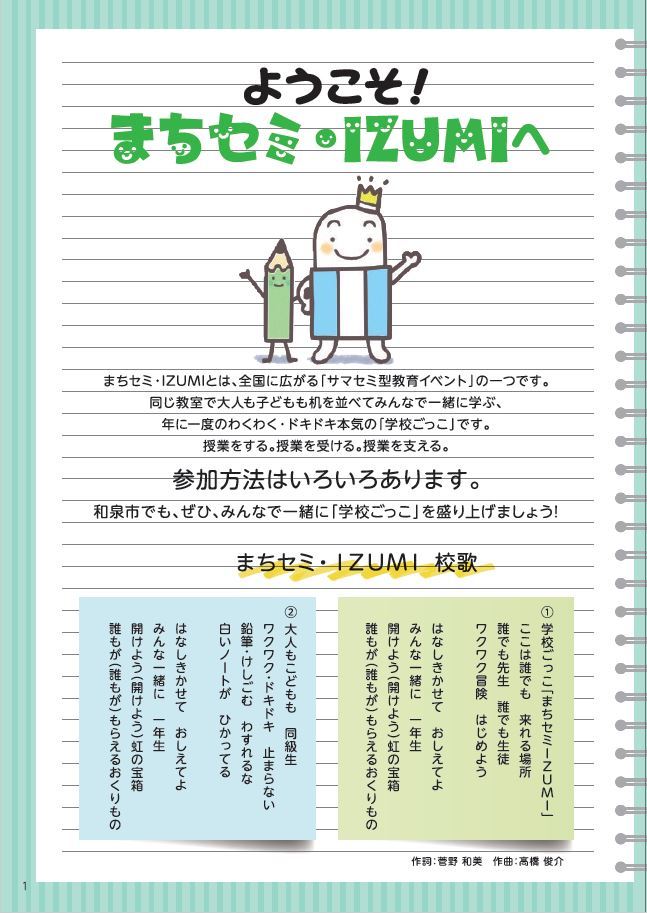 ようこそ!
まちセミ・IZUMIへ
まちセミ・IZUMIとは、全国に広がる「サマセミ型教育イベント」の一つです。
同じ教室で大人も子どもも机を並べてみんなで一緒に学ぶ、
年に一度のわくわく・ドキドキ本気の「学校ごっこ」です。
授業をする。授業を受ける。授業を支える。
参加方法はいろいろあります。
和泉市でも、ぜひ、みんなで一緒に「学校ごっこ」を盛り上げましょう!
まちセミ・IZUMI 校歌
①学校ごっこ「まちセミーIZUMI」
ここは誰でも 来れる場所
誰でも先生 誰でも生徒
ワクワク冒険 はじめよう
はなしきかせて おしえてよ
みんな一緒に 一年生
開けよう(開けよう)虹の宝箱
誰もが(誰もが)もらえるおくりもの
②大人もこどもも 同級生
ワクワク・ドキドキ 止まらない
鉛筆・けしごむ わすれるな
白いノートが ひかってる
はなしきかせて おしえてよ
みんな一緒に 一年生
開けよう(開けよう)虹の宝箱
誰もが(誰もが)もらえるおくりもの
作詞:菅野 和美 作曲:高橋 俊介
1